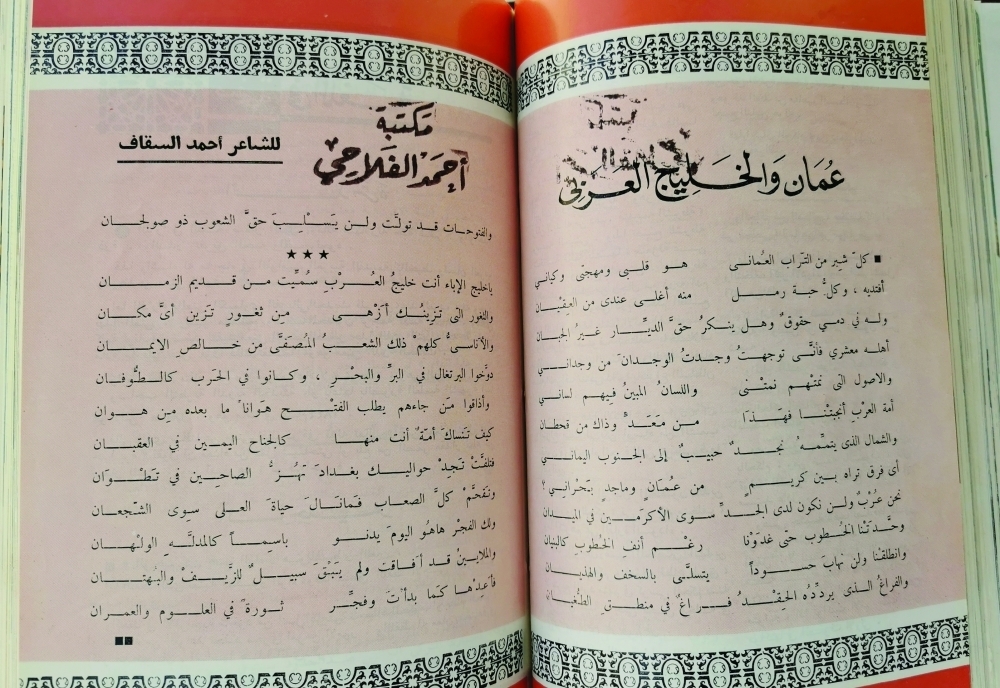 عُمَان وَالخَليج العَرَبي
■ كلّ شبر من التراب العُماني هو قلبي ومهجتي وكياني
أفتديه ، وكلُّ حبة رمل منه أغلى عندي من العِقيان
وله في دمي حقوقٌ وهل ينكرُ حقَّ الديَّار غيرُ الجبان
أهله معشري فأنَّى توجهتُ وجدتُ الوجدانَ من وجداني
والاصول التي نمتهم نمتني واللسانُ المبينُ فيهم لساني
أمة العربِ أنجبتنا فهذا من مَعَدٍّ وذاك من قحطان
والشمال الذي يتممهُ نجدٌ حبيبٌ إلى الجنوب اليماني
أي فرق تراه بين كريم من عُمانٍ وماجدٍ بَحْراني؟
نحن عُرْبٌ ولن نكون لدى الجدِّ سوى الأكرمين في الميدان
وحَّدتْنا الخُطوب حتّى غدَوْنا رغم أنف الخطوبِ كالبنيان
وانطلقنا ولن نهابَ حسوداً يتسلَّى بالسخف والهذيان
والفراغُ الذي يردِّدُه الحِقدُ فراغٌ في منطقِ الطغيان
مكتبة
أحمد الفلاحي
للشاعر أحمد السقاف
والفتوحات قد تولَّت ولن يَسْلِبَ حقَّ الشعوب ذو صولجان
★★★
ياخليج الإباء أنت خليجُ العُرْبِ سُمِّيت من قديم الزمان
والثغور التي تزينُك أزْهى مِن ثغورٍ تَزين أيَّ مكان
والأناسيُّ كلهمْ ذلك الشعبُ المُصَفَّى من خالصِ الايمان
دوَّخوا البرتغال في البرِّ والبحْرِ ، وكانوا في الحَرب كالطُّوفان
وأذاقوا مَن جاءهم يطلب الفتْح هَواناً ما بعده مِن هوان
كيف تَنساكَ أمَّةٌ أنت منها كالجناح اليمين في العقبان
فتلفَّتْ تَجدْ حواليك بغدادَ تهُزُّ الصاحِين في تَطْوان
وتقحَّمْ كلَّ الصعاب فمانالَ حياةَ العلى سِوى الشجعان
ولك الفجْر هاهُو اليومَ يدنو باسِماً كالمدلَّهِ الولهان
والملايينُ قد أفاقت ولم يَبْقَ سبيلٌ للزَّيفْ والبهتان
فأعِدْها كما بدأتَ وفجِّر ثورةً في العلومِ والعمران